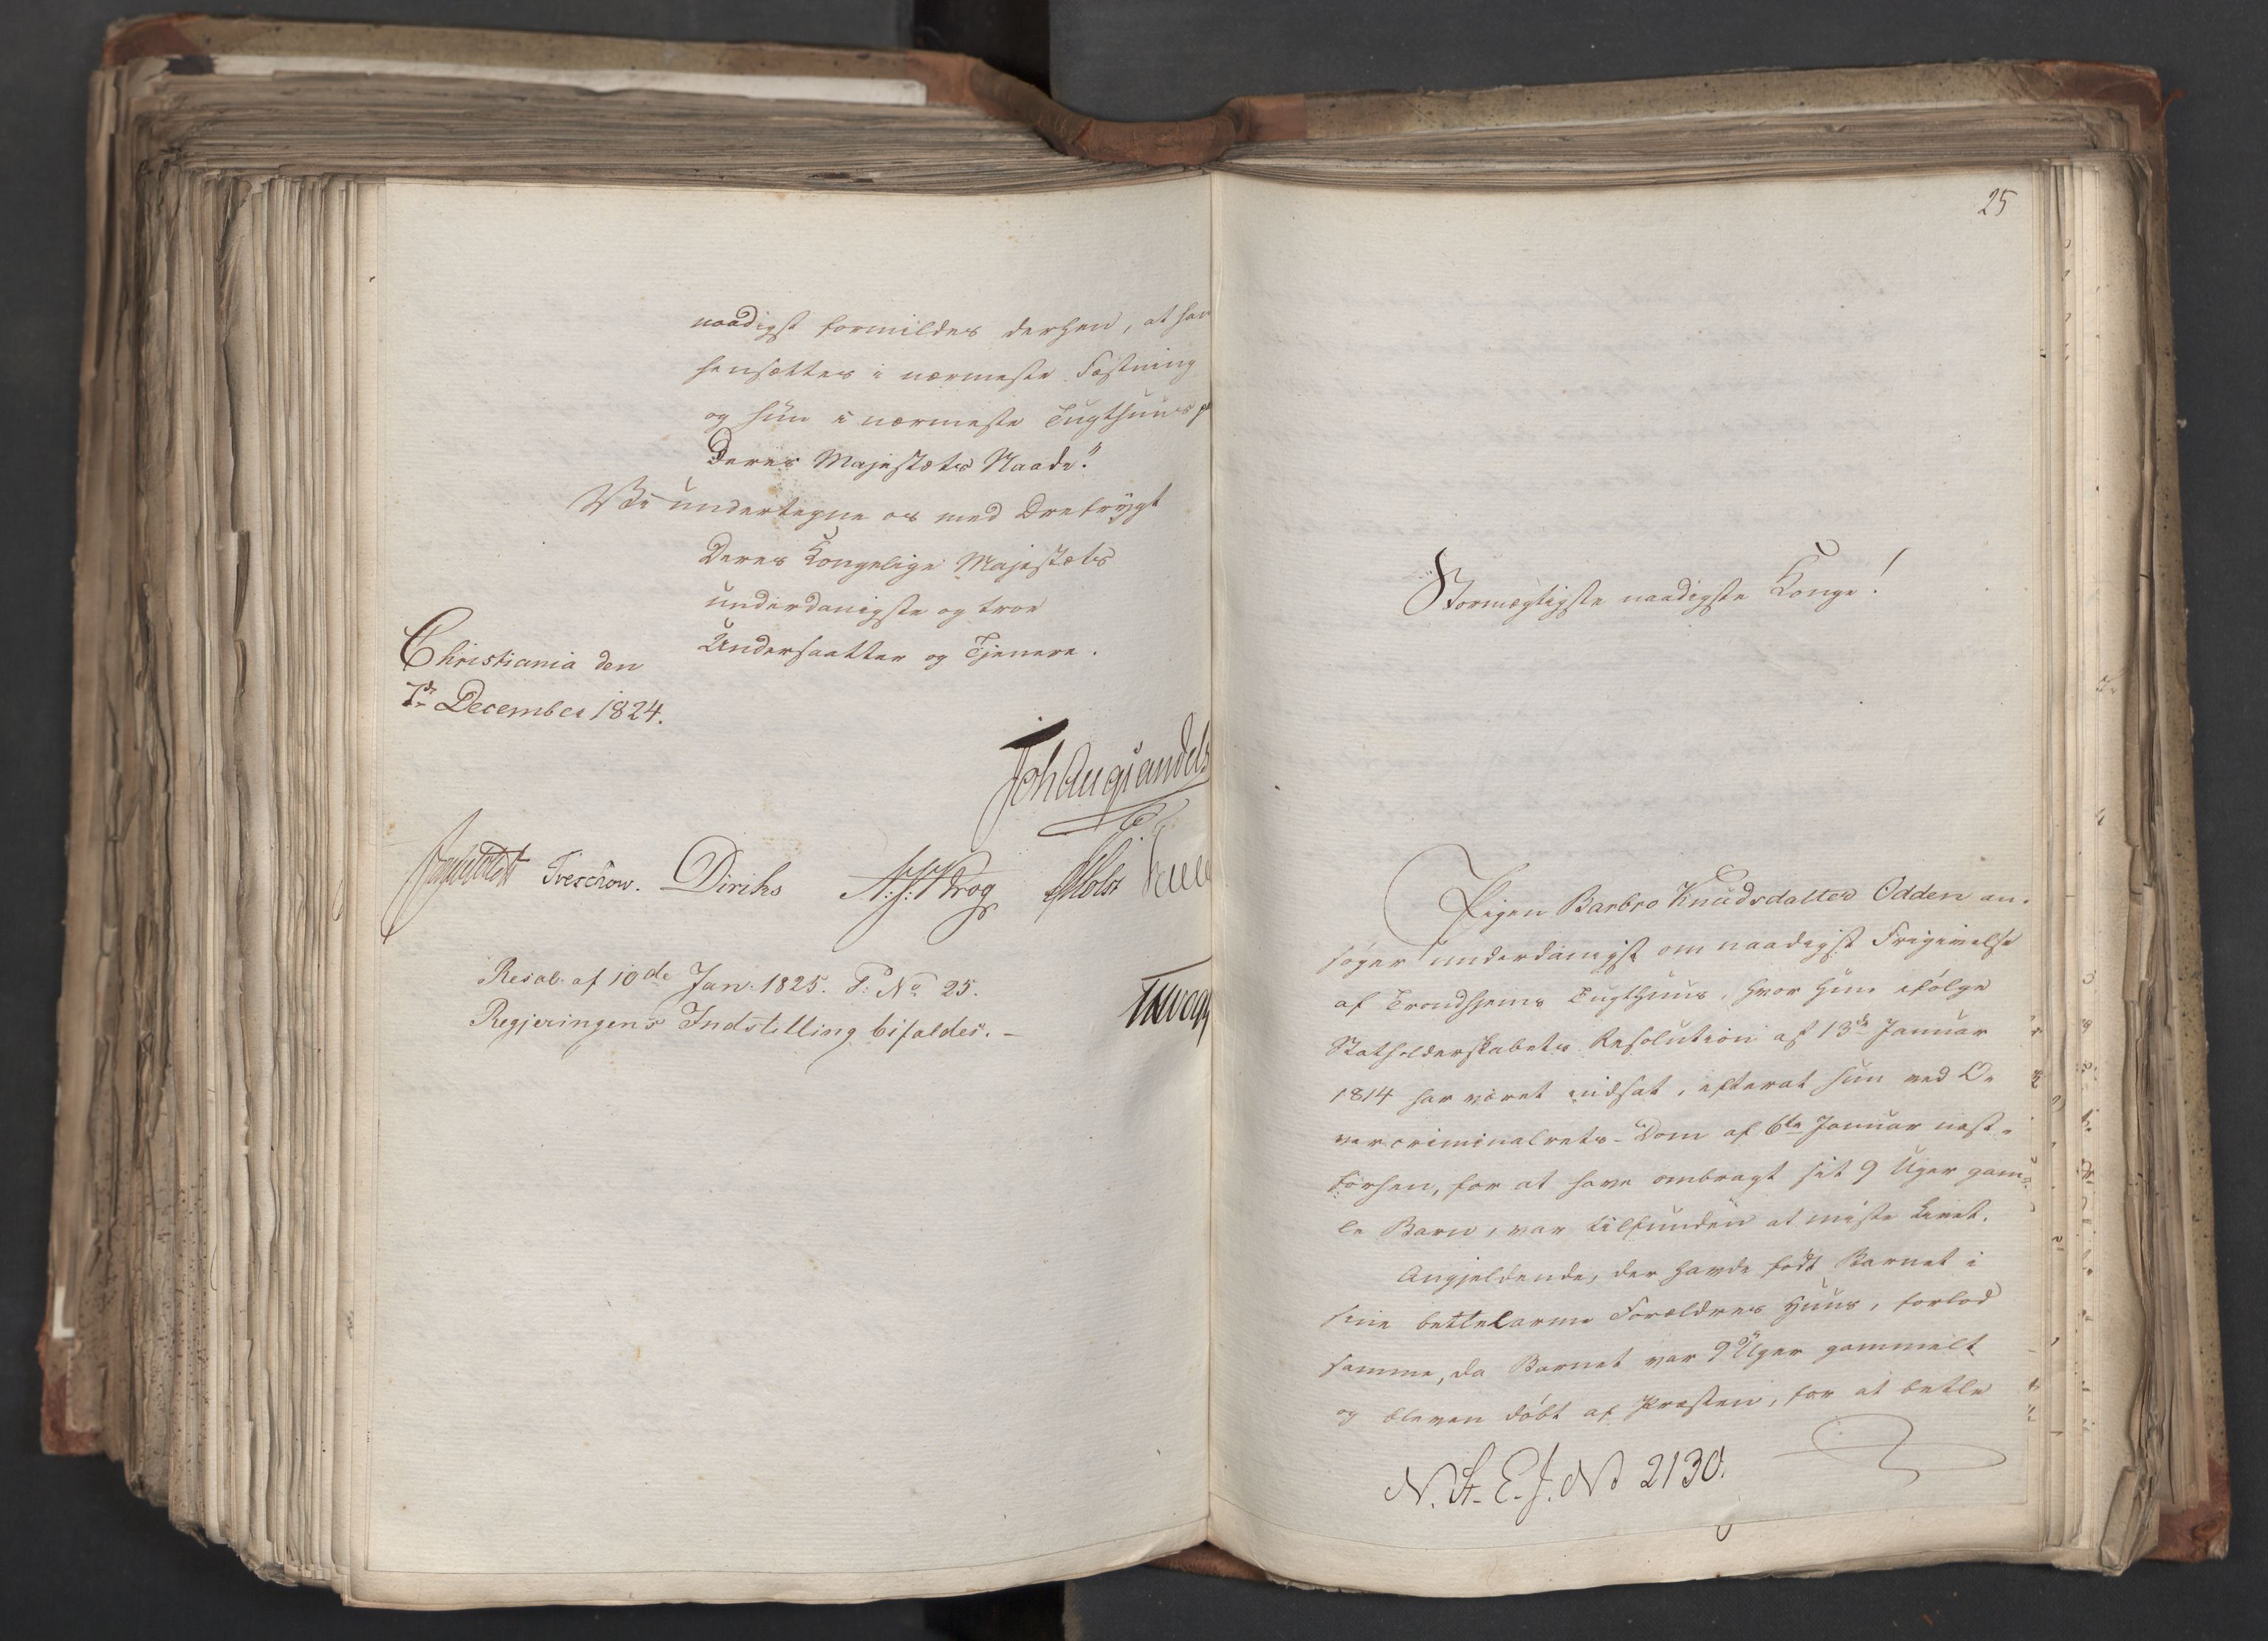 naadigst formildes derhen, at han
hensættes i nærmeste Fæstning
og hun i nærmeste Tugthuus p
Deres Majestæts Naade."
Vi undertegne os med Ærefrygt
Deres Kongelige Majestæts
underdanigste og troe
Undersaatter og Tjenere.
Christiania den
7de December 1824.
Joh Aug Sandels
Treschow. Diriks Holst
Resol. af 10de Jan. 1825. P: No 25.
Regjeringens Indstilling bifaldes. –
25
Stormægtigste naadigste Konge!
Pigen Barbro Knudsdatter Odden an-
søger underdanigst om naadigst Frigivelse
af Trondhjems Tugthuus, hvor hun ifølge
Statholderskabets Resolution af 13de Januar
1814 har været indsat, efterat hun ved O-
vercriminalrets-Dom af 6te Januar næst-
forhen, for at have ombragt sit 9 Uger gam-
le Barn, var tilfunden at miste Livet.
Angjeldende, der havde født Barnet i
sine bettelarme Forældres Huus, forlod
samme, da Barnet var 9 Uger gammelt
og bleven døbt af Præsten, for at betle
N. St. E. J. No 2130.